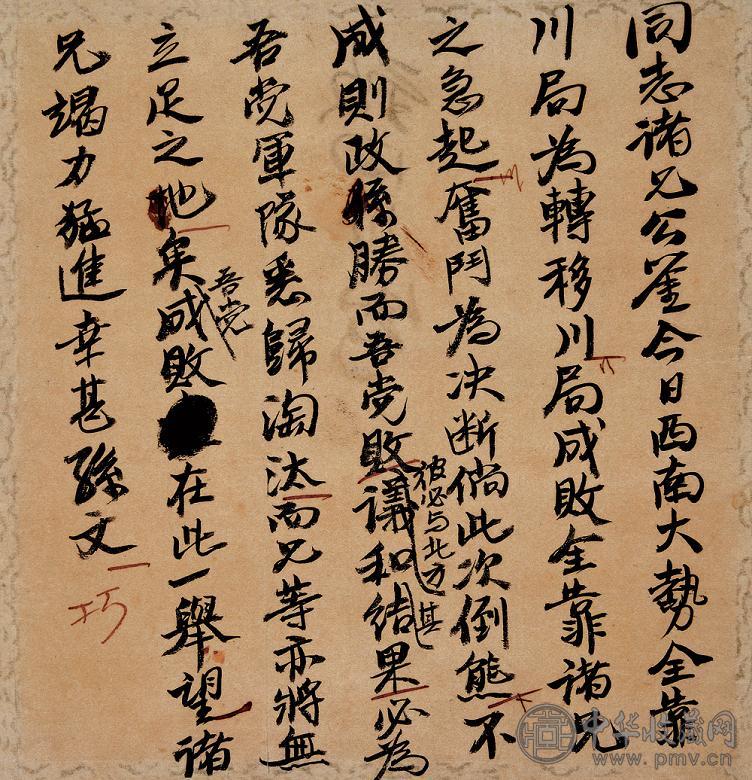 同志诸兄公鉴今日西南大勢全靠
川局為轉移川局成敗全靠诸兄
之急起奮鬥為决断倘此次倒熊不
成則政係勝而吾党敗彼必与北方議和其结果必為
吾党軍隊悉歸淘汰而兄等亦將無
立足之地矣吾党成敗在此一舉望诸
兄竭力猛進幸甚孫文
巧
中华收藏网
www.pmv.cn